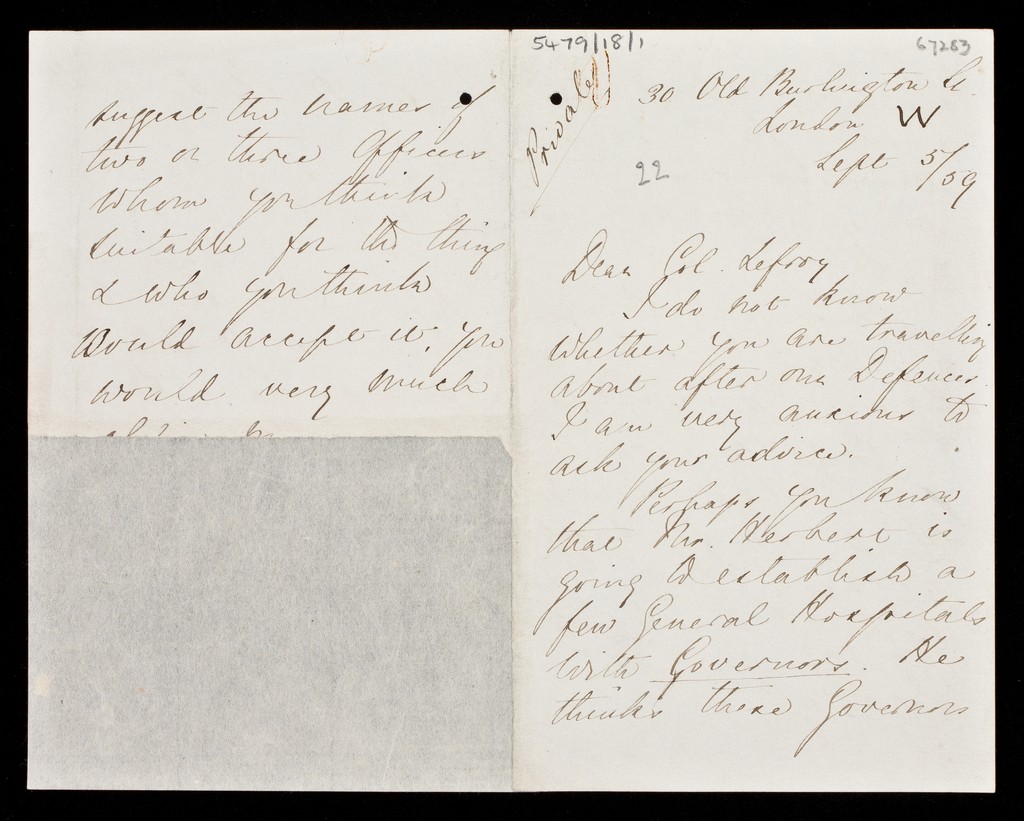 5479/18/1
67283
Private
30 Old Burlington St.
London W
Sept 5/59
22
Dear Col. Lefroy
I do not know
whether you are travelling
about after our Defences.
I am very anxious to
ask your advice.
Perhaps you know
that Mr. Herbert is
going to establish a
few General Hospitals
with Governors. He
thinks these Governors
suggest the names of
two or three Officers
whom you think
suitable for the thing
& who you think
would accept it, you
would very much